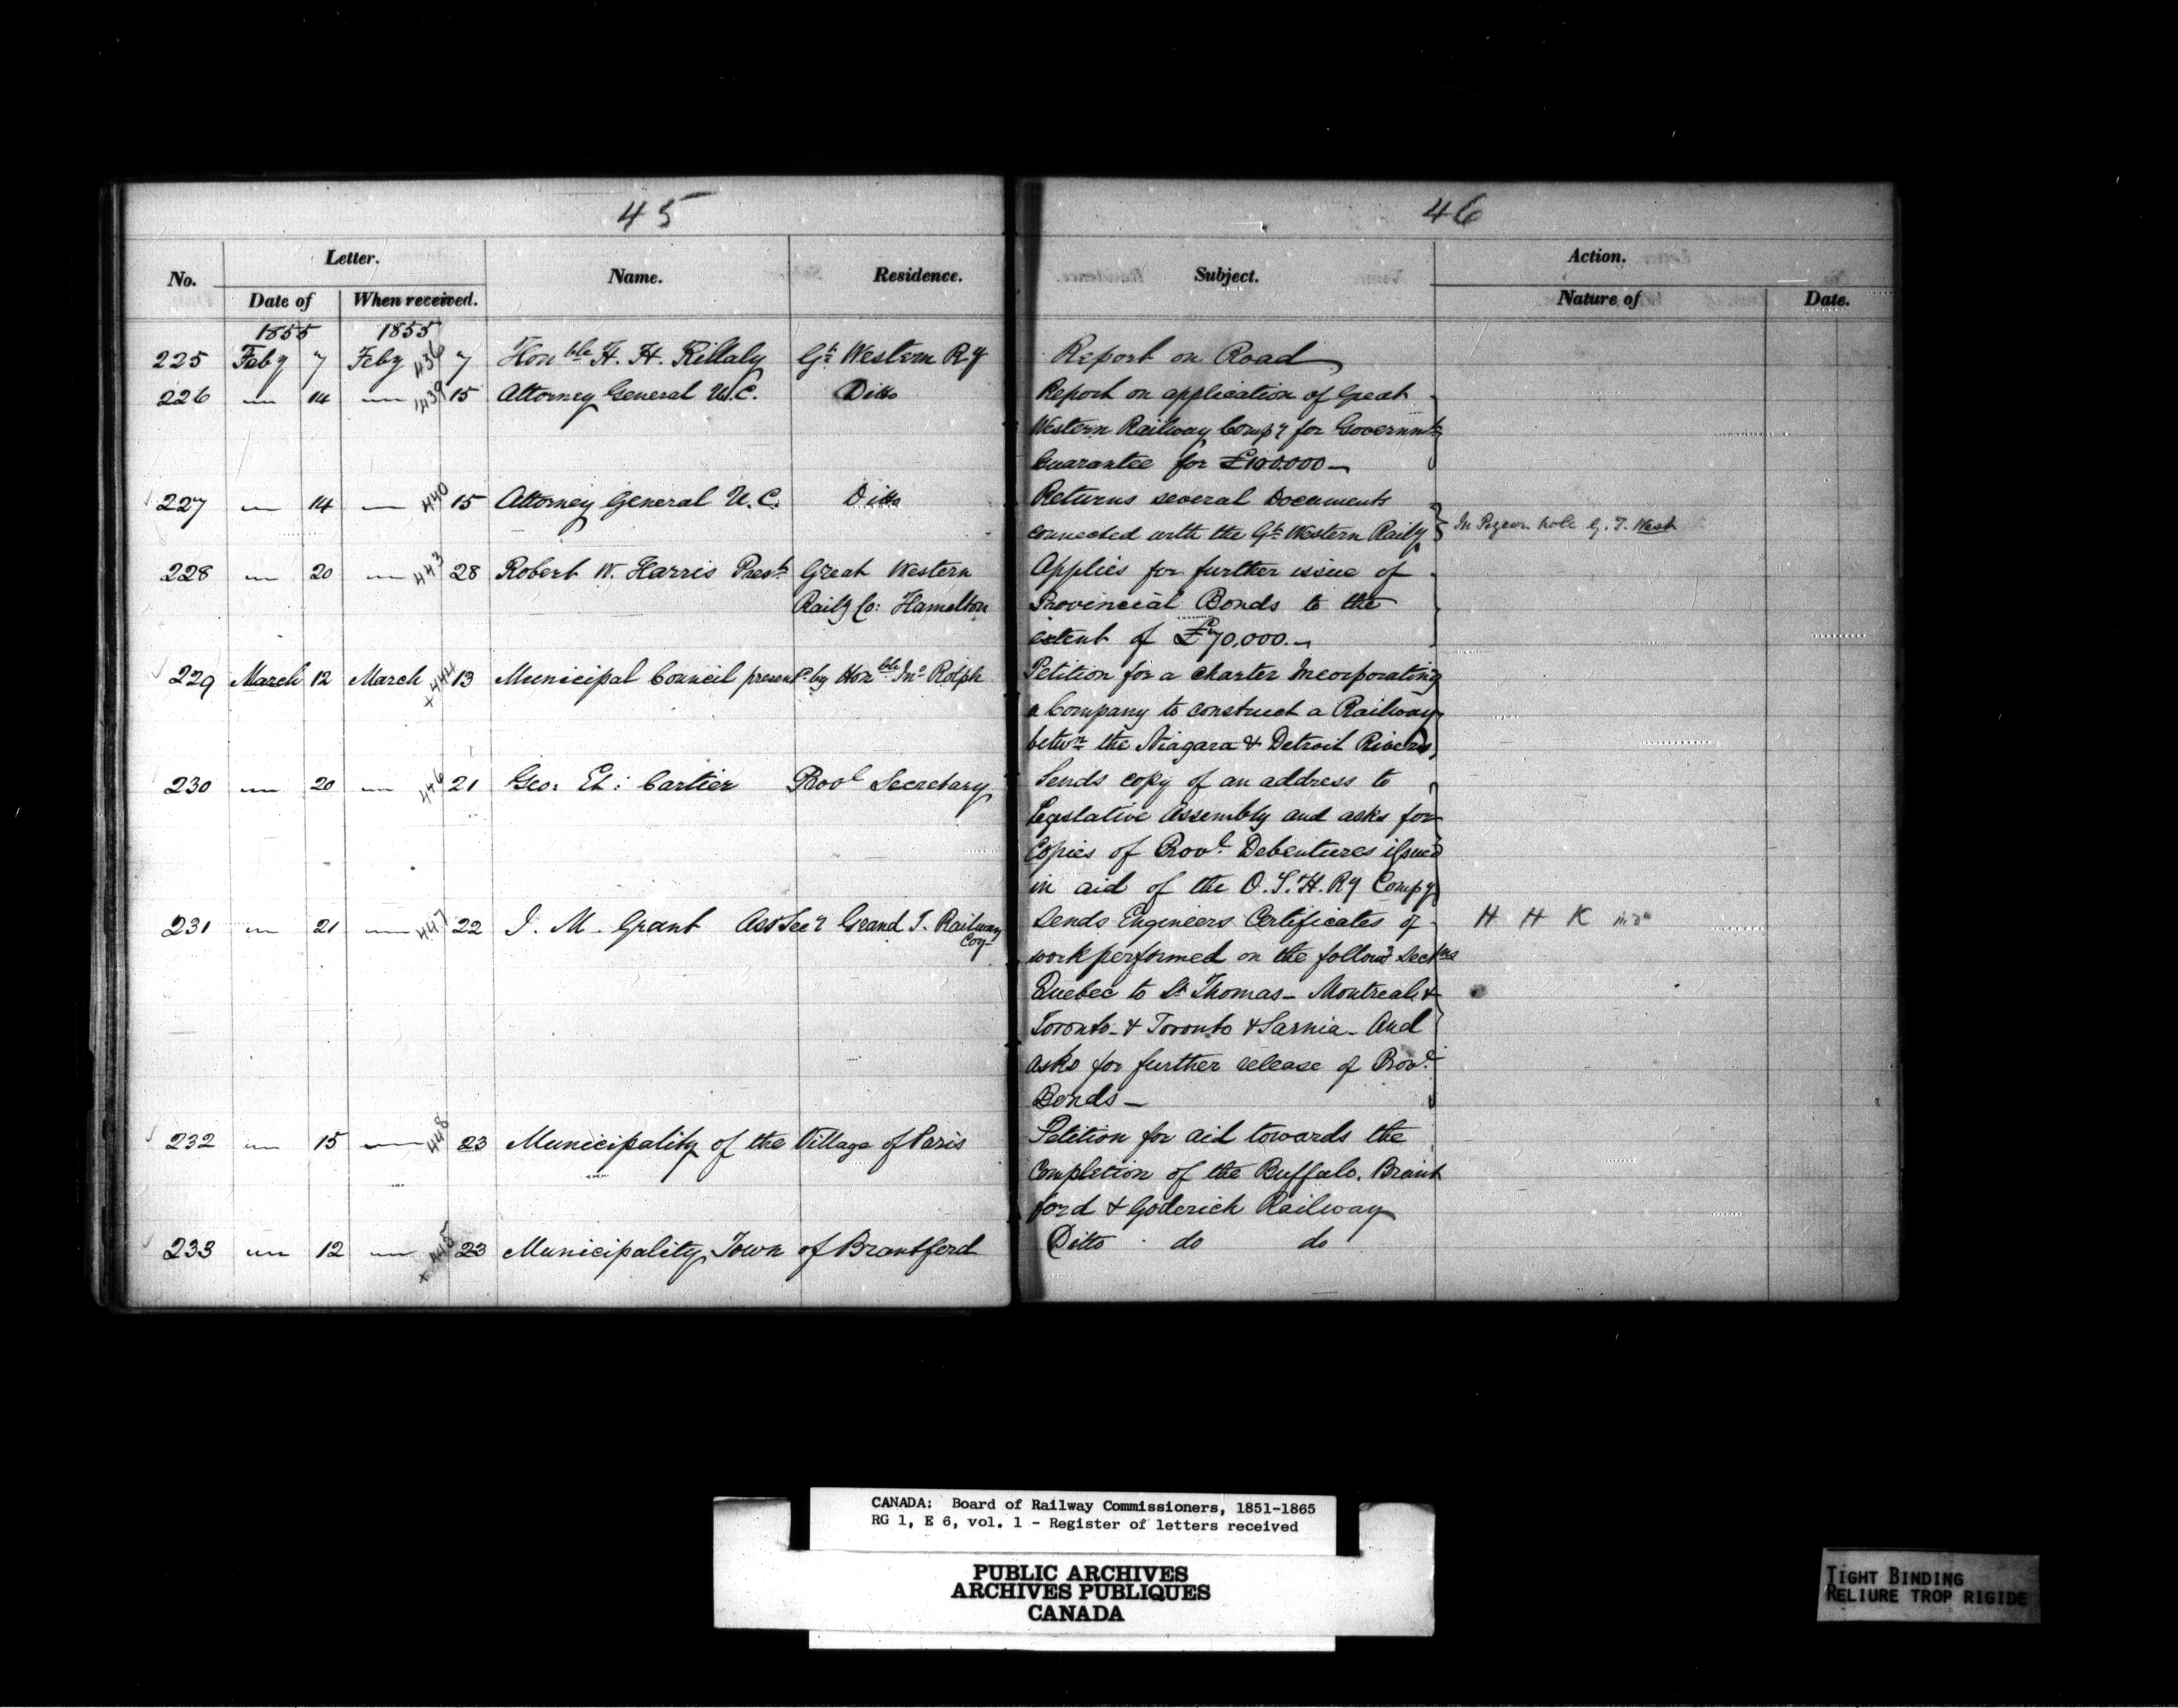 45
No. Letter. Name. Residence.
Date of When received.
1855 1855
225 Feby 7 Feby 436 7 Honble H. H. Killaly Gt Western Ry
226 — 14 — 439 15 Attorney General U.C. Ditto
227 — 14 — 440 15 Attorney General U.C. Ditto
228 — 20 — 443 28 Robert W. Harris Prest Great Western
Raily Co: Hamelton
229 March 12 March x 444 13 Municipal Council presentd by Honble Jno Rolph
230 — 20 — 446 21 Geo: Et: Cartier Provl Secretary
231 — 21 — 447 22 J. M. Grant Ass Secy Grand T. Railway
Coy
232 — 15 — 448 23 Municipality of the Village of Paris
233 — 12 — x 445 23 Municipality Town of Brantford
46
Subject. Action.
Nature of Date.
Report on Road
Report on application of Great
Western Railway Compy for Governmt
Guarantee for £100.000—
Returns several Documents
connected with the Gt Western Raily In Pigeon hole G. T. West
Applies for further issue of
Provincial Bonds to the
extent of £70,000.—
Petition for a charter Incorporating
a Company to construct a Railway
betwn the Niagara & Detroit Rivers
Sends copy of an address to
Legislative Assembly and asks for
Copies of Provl Debentures issued
in aid of the O. S. H. Ry Compy
Sends Engineers Certificates of H H K
work performed on the followg Sectns
Quebec to St Thomas— Montreal &
Toronto— & Toronto & Sarnia— And
asks for further release of Provl
Bonds—
Petition for aid towards the
Completion of the Buffalo, Brant
ford & Goderich Railway
Ditto do do
CANADA: Board of Railway Commissioners, 1851-1865
RG 1, E 6, vol. 1 - Register of letters received
PUBLIC ARCHIVES
ARCHIVES PUBLIQUES
CANADA
TIGHT BINDING
RELIURE TROP RIGIDE